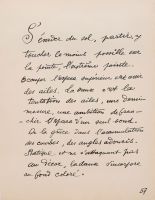 S'évader du sol, partir, y
toucher le moins possible sur
la pointe, l'extrême pointe.
Occuper l'espace supérieur avec
des ailes. La danse est la
tentation des ailes, une demi-
mesure, une ambition de
l'espace d'un seul
De la grâce dans l'accumulation
des courbes, des angles adoucis.
et ne s'attaquant pas
au décor, la danse s'incorpore
au fond coloré.
59